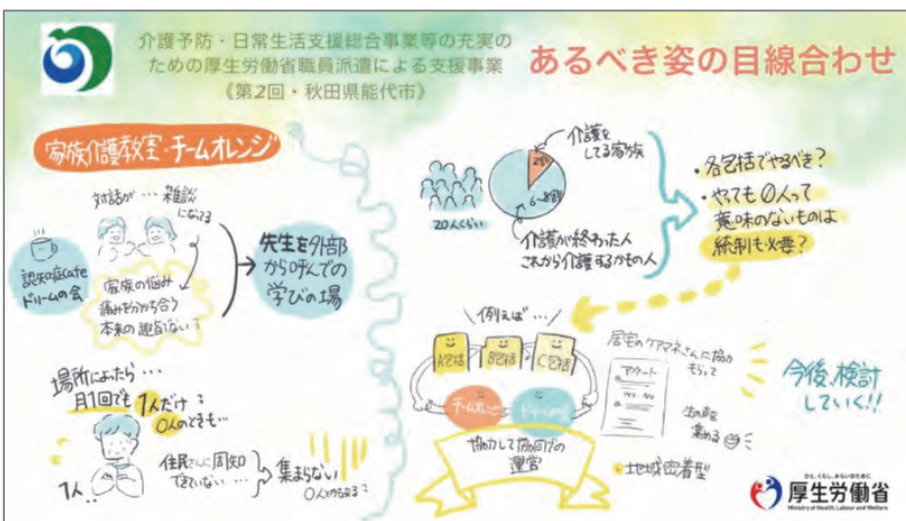 介護予防・日常生活支援総合事業等の充実の
ための厚生労働省職員派遣による支援事業
《第2回・秋田県能代市》
あるべき姿の目線合わせ
家族介護教室・チームオレンジ
対話が… 雑談
になってる
認知症cafe
ドリームの会
家族の悩み
痛みを分かち合う
本来の趣旨でない?
先生を外部
から呼んでの
学びの場
場所によったら…
月1回でも1人だけ?
0人のときも…
1人
住民さんに周知
できていない…
集まらない
0人とかもある?
20人くらい
介護を
してる家族
2割
6~8割
介護が終わった人
これから介護するかもの人
・各包括でやるべき?
・やっても0人って
意味のないものは
統制も必要?
例えば…
A包括
B包括
C包括
チームオレンジ
ドリームの会
協力して協同での
運営
居宅のケアマネさんに協力
もらって
アンケート
YES・NO
生の声を
集める
・地域密着型
今後、検討
していく!!
ひと、くらし、みらいのために
厚生労働省
Ministry of Health, Labour and Welfare